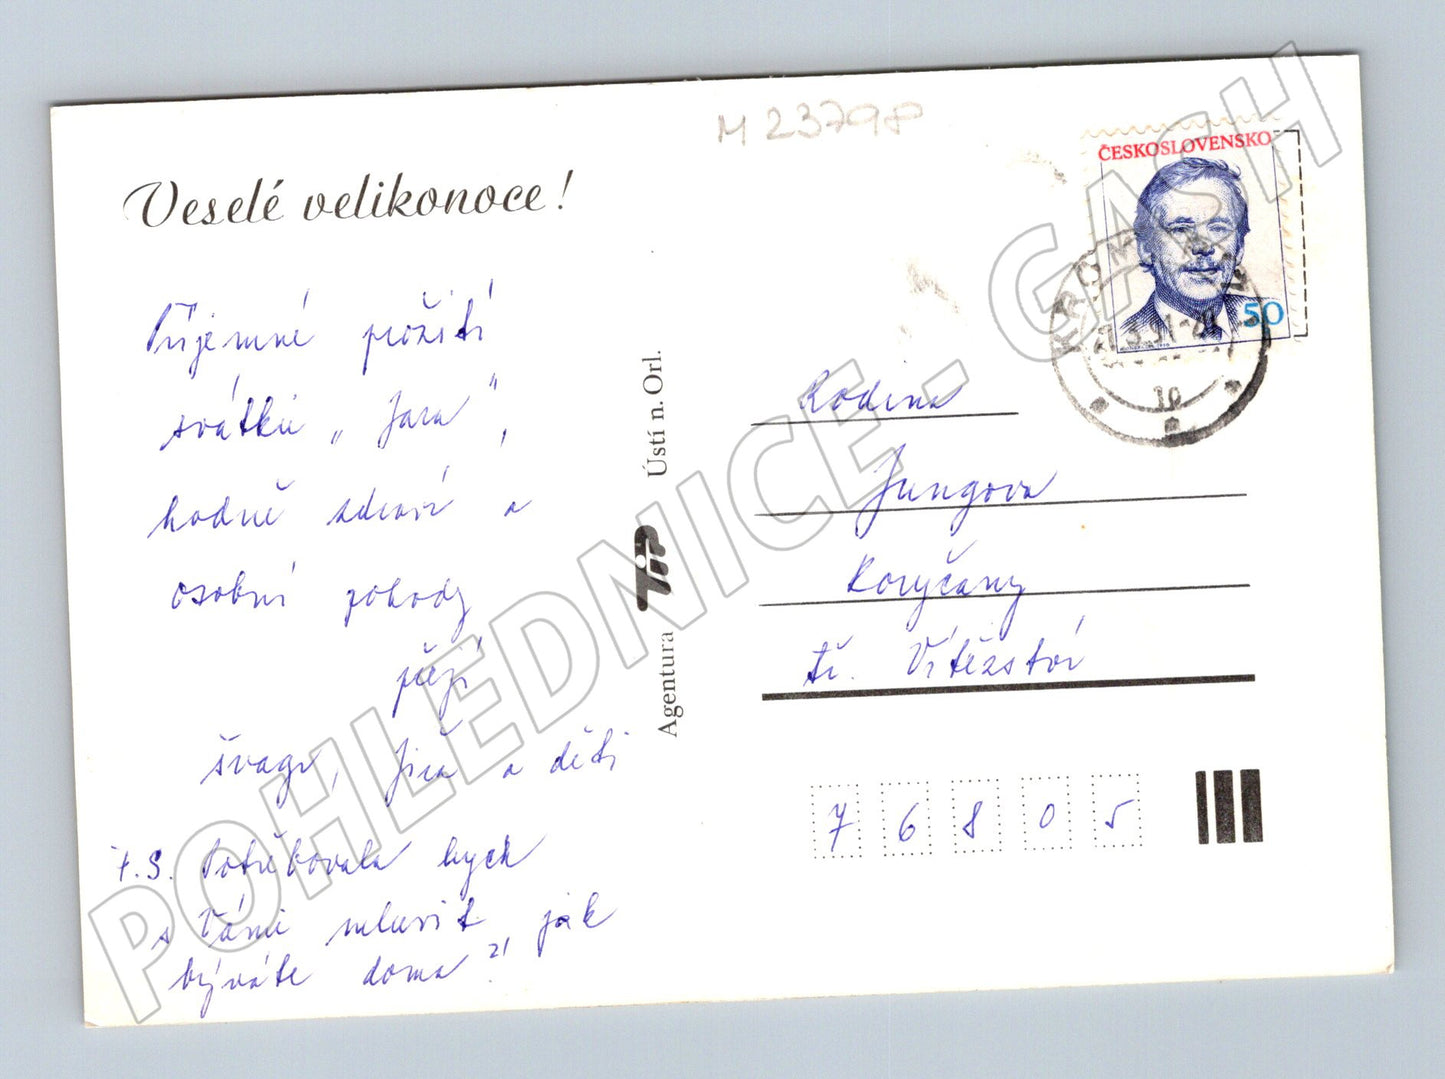 M 23798
Veselé velikonoce!
Příjemné prožití
svátků „Jara",
hodně zdraví a
osobní pohody
přejí
švagr, Jiřa a děti
P.S. Potřebovala bych
s Vámi mluvit, jak
býváte doma?
Agentura TIP Ústí n. Orl.
ČESKOSLOVENSKO
50
Rodina
Jungova
Koryčany
tř. Vítězství
7 6 8 0 5
POHLEDNICE. GASH